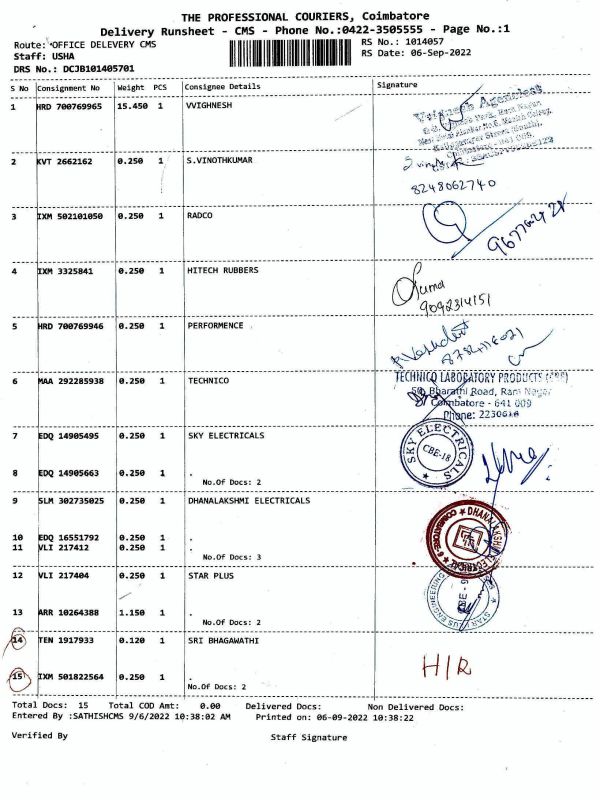 THE PROFESSIONAL COURIERS, Coimbatore
Delivery Runsheet - CMS - Phone No.:0422-3505555 - Page No.:1
Route: OFFICE DELEVERY CMS
RS No.: 1014057
Staff: USHA
RS Date: 06-Sep-2022
DRS No.: DCJB101405701
S No Consignment No Weight PCS Consignee Details Signature
1 HRD 700769965 15.450 1 VVIGHNESH
2 KVT 2662162 0.250 1 S.VINOTHKUMAR
8248062740
3 IXM 502101050 0.250 1 RADCO
4 IXM 3325841 0.250 1 HITECH RUBBERS
Suma
9092314151
5 HRD 700769946 0.250 1 PERFORMENCE
6 MAA 292285938 0.250 1 TECHNICO
TECHNICO LABORATORY PRODUCTS (CBE)
50, Bharathi Road, Ram Nagar
Coimbatore - 641 009
Phone: 2230616
7 EDQ 14905495 0.250 1 SKY ELECTRICALS
SKY ELECTRICALS
CBE-18
8 EDQ 14905663 0.250 1 .
No.Of Docs: 2
9 SLM 302735025 0.250 1 DHANALAKSHMI ELECTRICALS
DHANALAKSHMI ELECTRICALS
10 EDQ 16551792 0.250 1 .
11 VLI 217412 0.250 1 .
No.Of Docs: 3
12 VLI 217404 0.250 1 STAR PLUS
13 ARR 10264388 1.150 1 .
14 TEN 1917933 0.120 1 SRI BHAGAWATHI
H/R
15 IXM 501822564 0.250 1 .
No.Of Docs: 2
Total Docs: 15 Total COD Amt: 0.00 Delivered Docs: Non Delivered Docs:
Entered By :SATHISHCMS 9/6/2022 10:38:02 AM Printed on: 06-09-2022 10:38:22
Verified By Staff Signature